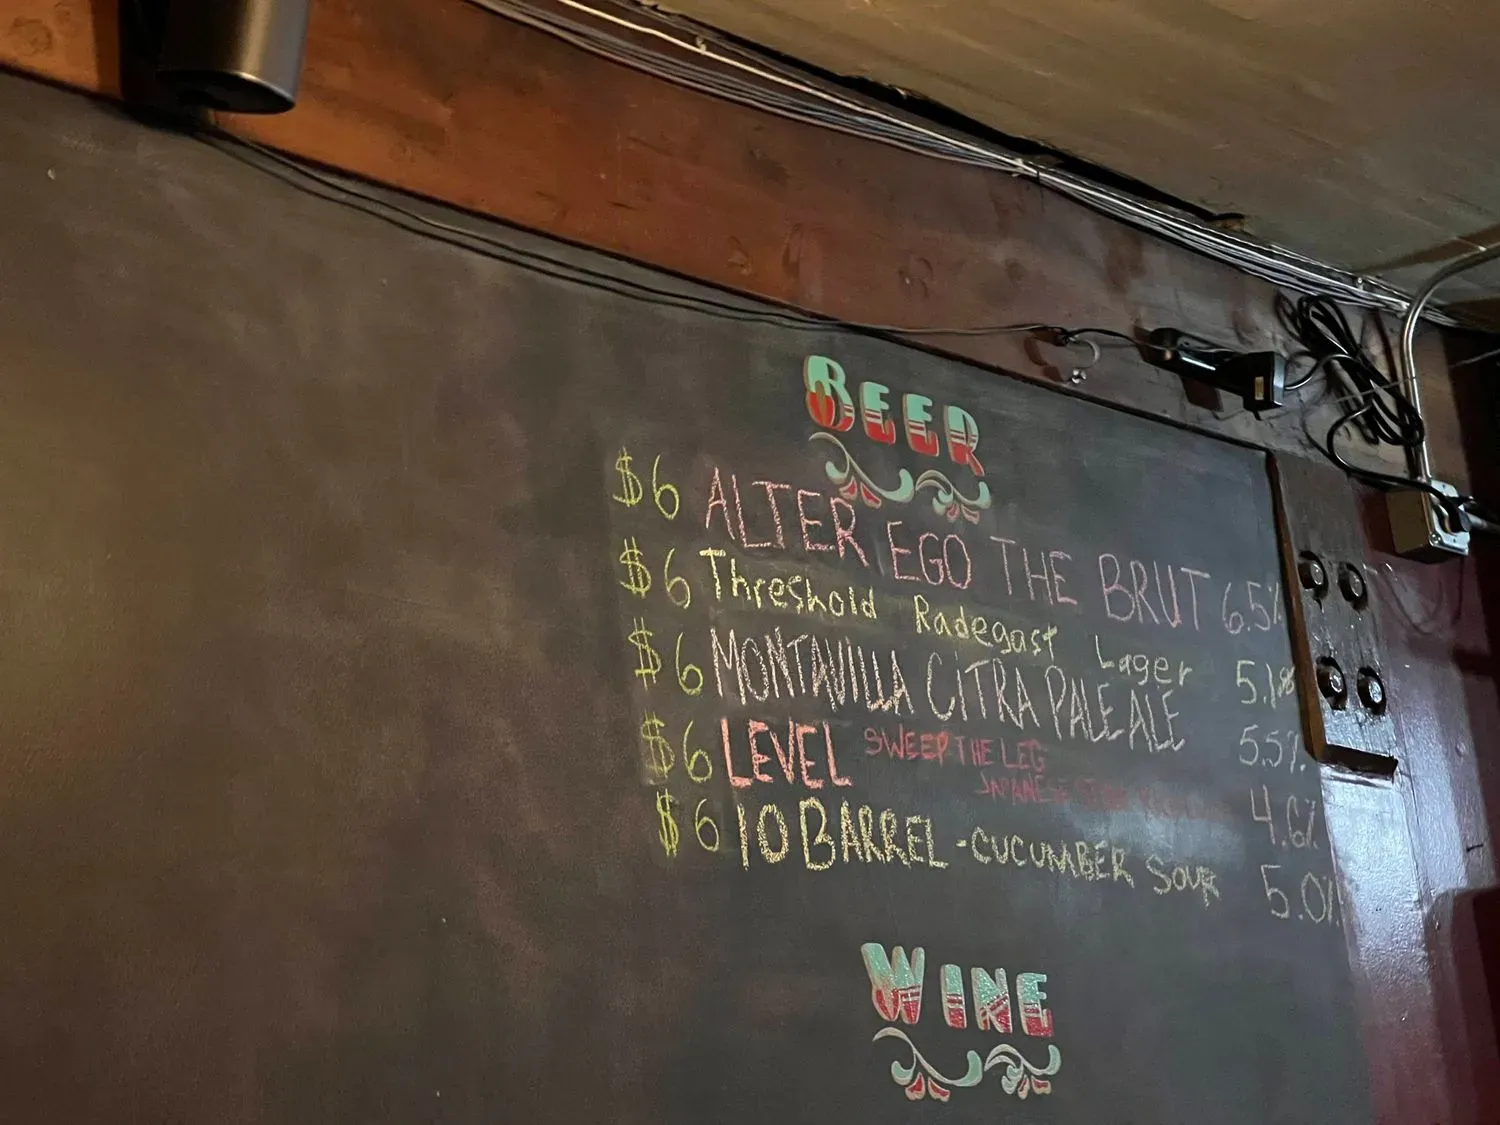 BEER
$6 ALTER EGO THE BRUT 6.5%
$6 Threshold Radegast Lager 5.1%
$6 MONTAVILLA CITRA PALE ALE 5.5%
$6 LEVEL SWEEP THE LEG
JAPANESE 4.6%
$6 10 BARREL - CUCUMBER SOUR 5.0%
WINE